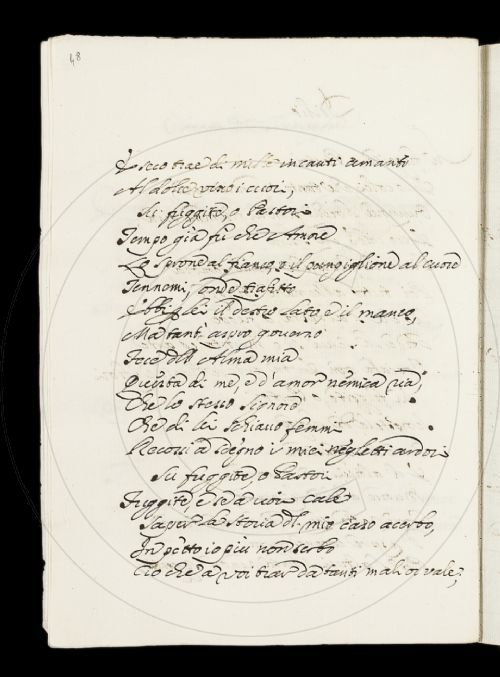 48
E seco trae di mille incauti amanti
Al dolce vino i cuori,
Su fuggite, o Pastori
Tempo già fù che Amore
Lo sprone al fianco, e il pungiglione al cuore
Tennemi, onde trafitto
Ebbi lei il destro lato e il manco,
Ma tant' aspro governo
Fece dell Alma mia
Questa di me, e d'amor nemica ria,
Che lo stesso Signore
Che di lei schiavo femmi
Recossi a sdegno i miei negletti ardori
Su fuggite, o Pastori
Fuggite, e se a voi cale
Saper la storia del mio caso acerbo,
In petto io più non serbo
Ciò che a voi trar da tanti mali or vale;